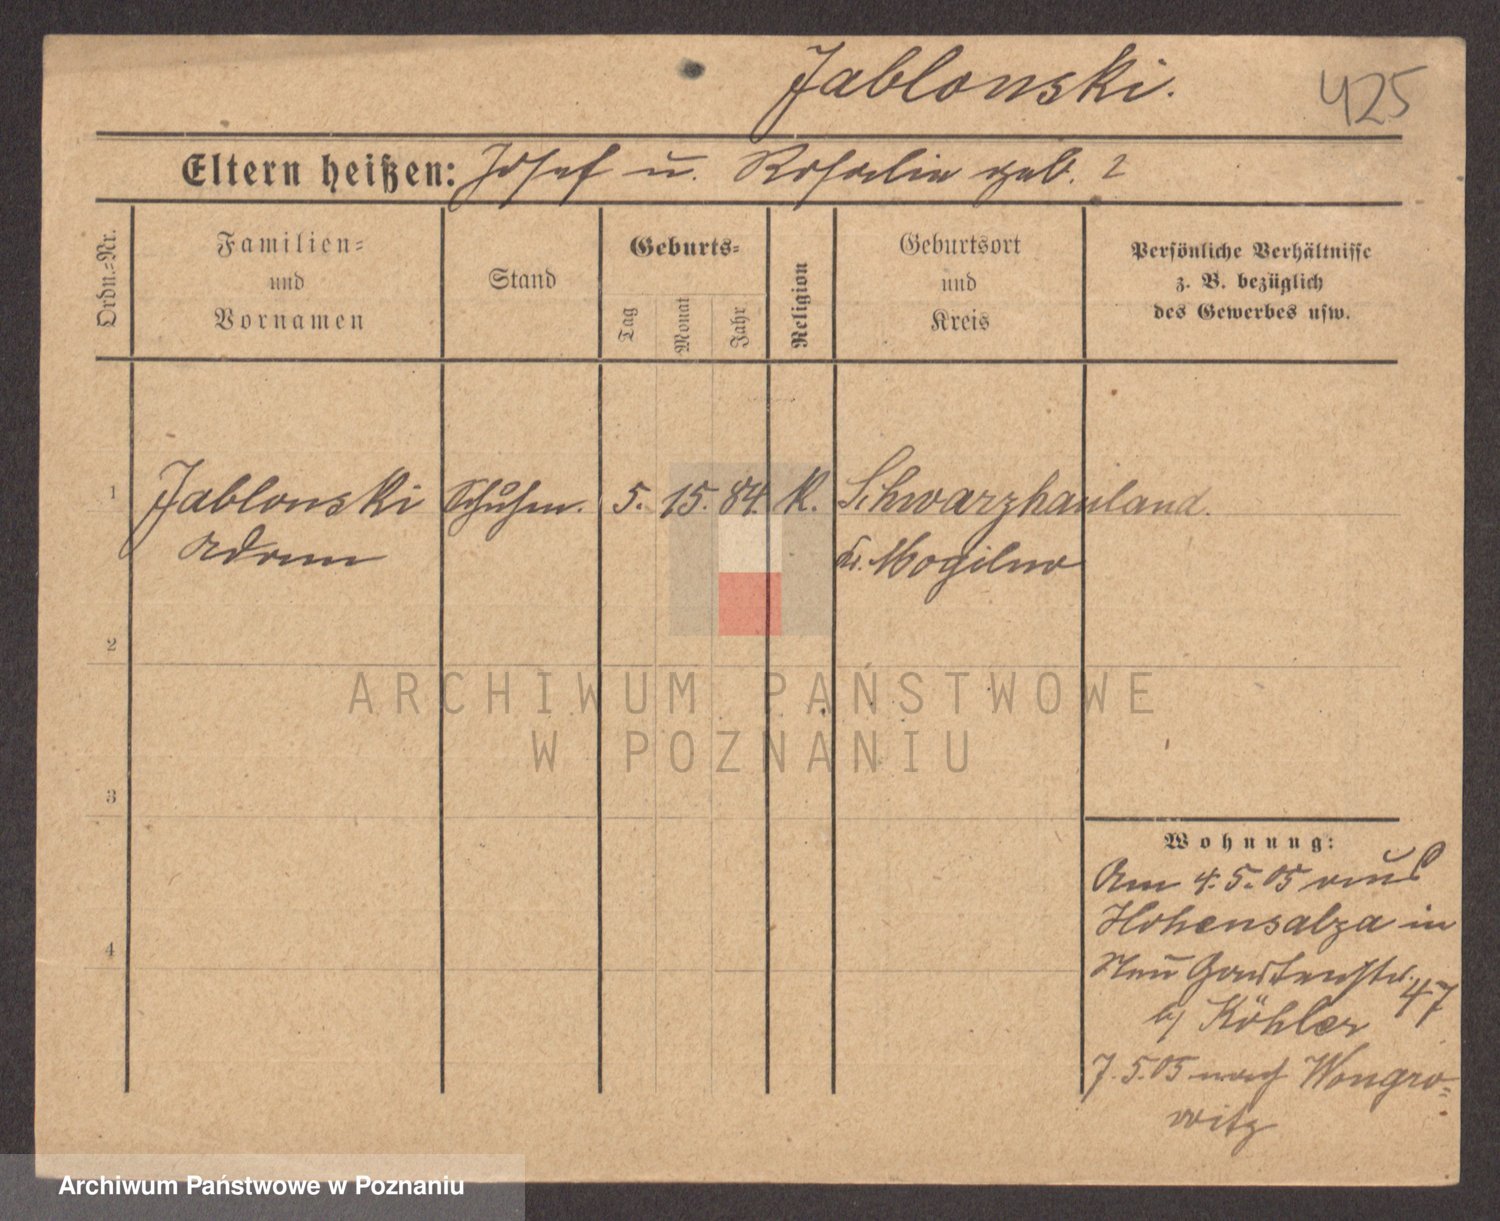 Jablonski.
425
Eltern heißen: Josef u. Rosalie geb. ?
Ordn.=Nr.
Familien=
und
Vornamen
Stand
Geburts=
Tag
Monat
Jahr
Religion
Geburtsort
und
Kreis
Persönliche Verhältnisse
z. B. bezüglich
des Gewerbes usw.
1
Jablonski
Adam
Schuhm.
5. 15. 84. K.
Schwarzhauland.
Kr. Mogilno
2
ARCHIWUM PAŃSTWOWE
W POZNANIU
3
4
Wohnung:
Am 4.5.05 aus
Hohensalza in
Neu Gartenstr. 47
b/ Köhler
7.5.05 nach Wongro=
witz
Archiwum Państwowe w Poznaniu